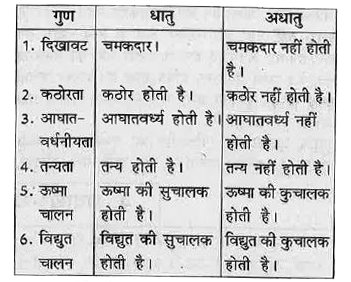 गुण धातु अधातु
1. दिखावट चमकदार। चमकदार नहीं होती
है।
2. कठोरता कठोर होती है। कठोर नहीं होती है।
3. आघात- आघातवर्ध्य होती है। आघातवर्ध्य नहीं
वर्धनीयता होती है।
4. तन्यता तन्य होती है। तन्य नहीं होती है।
5. ऊष्मा ऊष्मा की सुचालक ऊष्मा की कुचालक
चालन होती है। होती है।
6. विद्युत विद्युत की सुचालक विद्युत की कुचालक
चालन होती है। होती है।